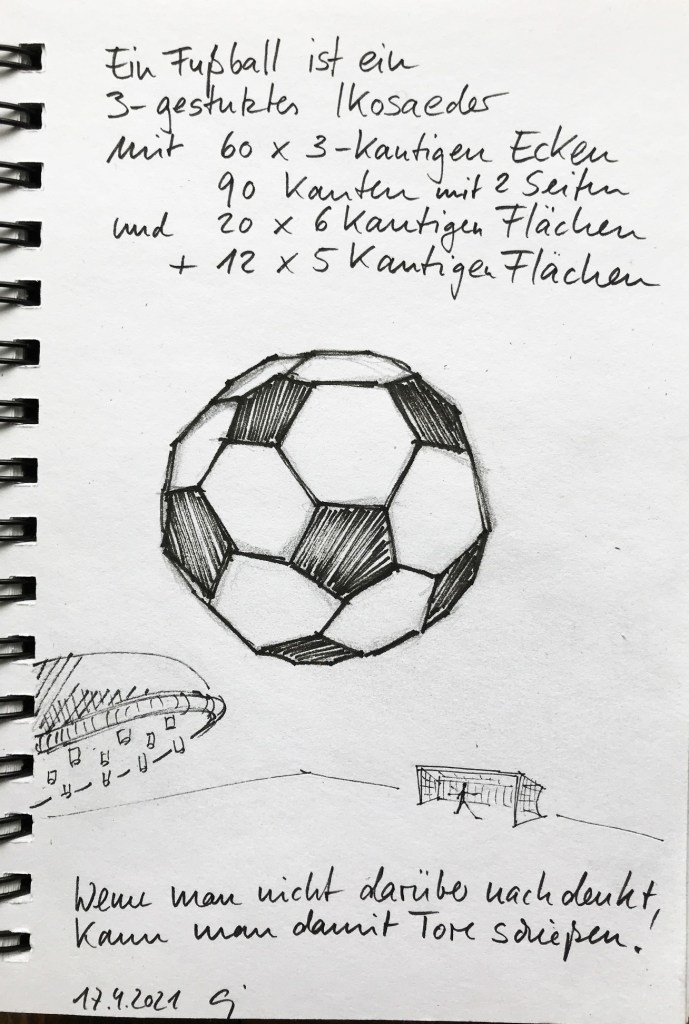 Ein Fußball ist ein
3-gestutztes Ikosaeder
mit 60 x 3-kantigen Ecken
90 Kanten mit 2 Seiten
und 20 x 6 kantigen Flächen
+ 12 x 5 kantigen Flächen
Wenn man nicht darüber nachdenkt,
kann man damit Tore schießen!
17.4.2021